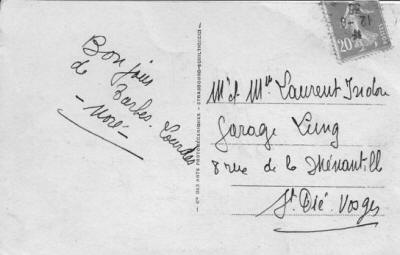 Bonjour
de
Barbes. Lourdes
- Noré -
Cie DES ARTS PHOTOMÉCANIQUES - STRASBOURG-SCHILTIGHEIM
12 - 6
20
Mr et Mme Laurent Isidore
Garage Lung
8 rue de la Ménantille
St Dié. Vosges